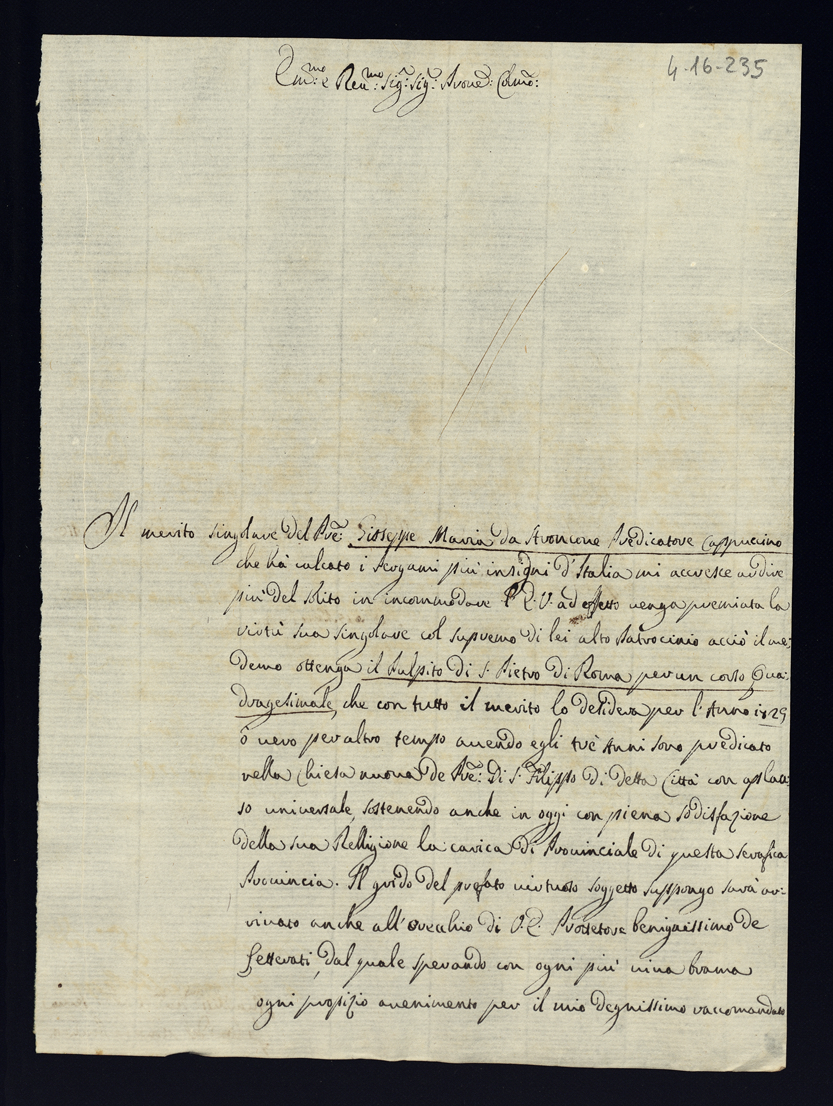 4-16-235
Em:mo e Reu:mo Sig:r Sig:r Prone: Colmo:
Il merito singolare del Pre: Giuseppe Maria da Stroncone Predicatore Cappuccino
che hà calcato i Pergami più insigni d'Italia mi accresce ardire
più del solito in incommodare l'E: V: ad effetto uenga premiata la
virtù sua singolare col supremo di lei alto Patrocinio acciò il me:
demo ottenga il Pulpito di S: Pietro di Roma per un corso Qua:
dragesimale, che con tutto il merito lo desidera per l'Anno 1725
ò uero per altro tempo auendo egli trè Anni sono predicato
nella Chiesa nuoua de Pre: di S: Filippo di detta Città con aplau:
so uniuersale, sostenendo anche in oggi con piena sodisfazione
della sua Relligione la carica di Prouinciale di questa serafica
Prouincia. Il grido del prefato uirtuoso soggetto suppongo sarà ar:
riuato anche all'orecchio di V: E: Protettore benignissimo de
Letterati, dal quale sperando con ogni più uiua brama
ogni propizio auenimento per il mio degnissimo raccomandato